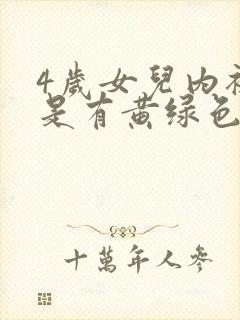 4歲女兒內
是有黃绿色
十萬年人參